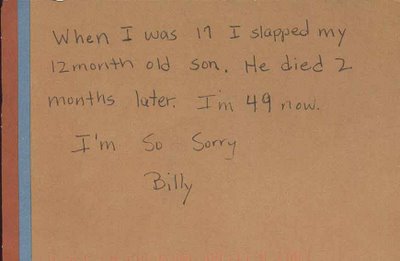 When I was 17 I slapped my
12 month old son. He died 2
months later. I'm 49 now.
I'm So Sorry
Billy